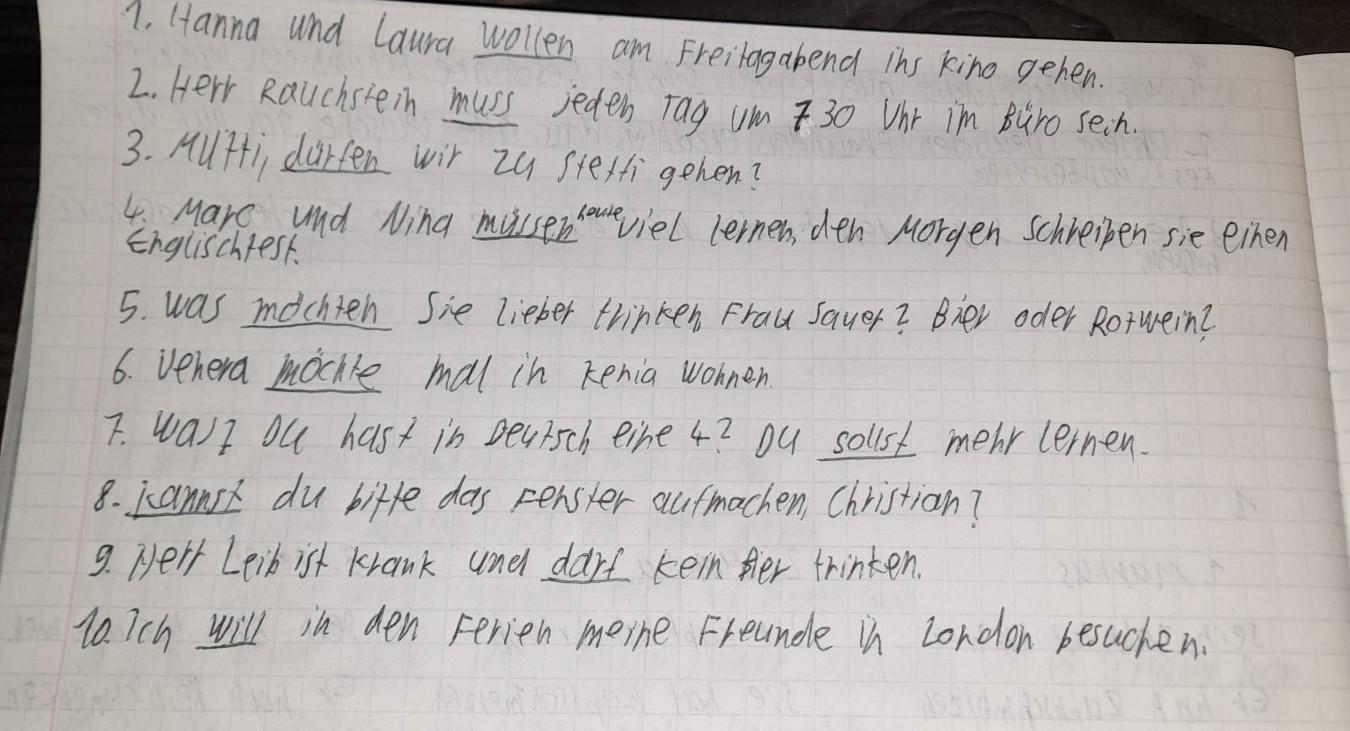 1. Hanna und Laura wollen am Freitagabend ins Kino gehen.
2. Herr Rauchstein muss jeden Tag um 7 30 Uhr im Büro sein.
3. Mutti, dürfen wir zu Steffi gehen?
4. Marc und Nina müssen heute viel lernen, den Morgen schreiben sie einen
Englischtest.
5. Was möchten Sie lieber trinken, Frau Sauer? Bier oder Rotwein?
6. Venera möchte mal in Kenia wohnen.
7. Was? Du hast in Deutsch eine 4? Du sollst mehr lernen.
8. Kannst du bitte das Fenster aufmachen, Christian?
9. Herr Leib ist krank und darf kein Bier trinken.
10. Ich will in den Ferien meine Freunde in London besuchen.